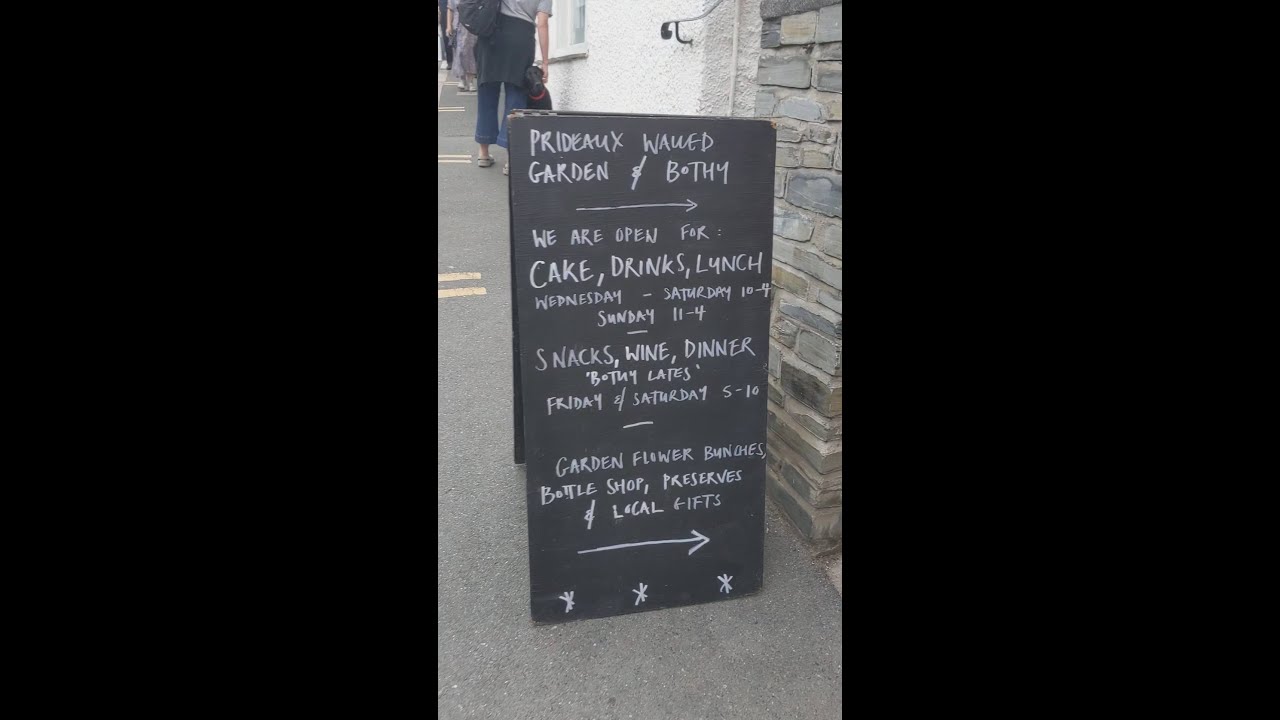 PRIDEAUX WALLED
GARDEN & BOTHY
WE ARE OPEN FOR:
CAKE, DRINKS, LUNCH
WEDNESDAY - SATURDAY 10-4
SUNDAY 11-4
SNACKS, WINE, DINNER
'BOTHY LATES'
FRIDAY & SATURDAY 5-10
GARDEN FLOWER BUNCHES,
BOTTLE SHOP, PRESERVES
& LOCAL GIFTS